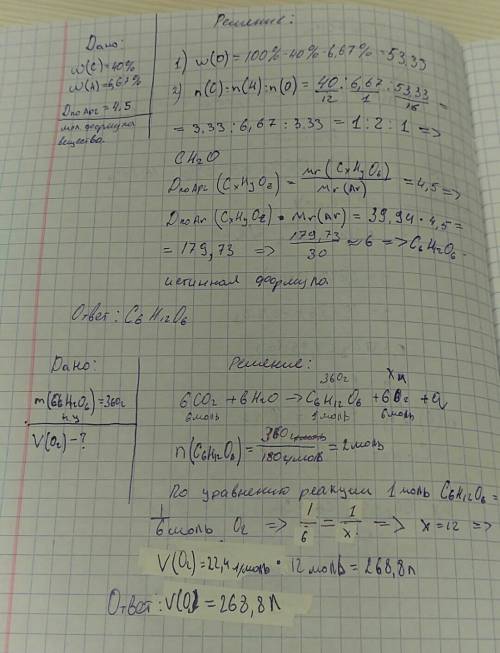 Решение:
Дано:
w(C)=40%
w(H)=6,67%
D по Арг = 4,5
мол. формула
вещества.
1) w(O) = 100% - 40% - 6,67% = 53,33
2) n(C):n(H):n(O) = 40/12 : 6,67/1 : 53,33/16 =
= 3.33 : 6,67 : 3.33 = 1 : 2 : 1 =>
CH2O
D по Арг (CxHyOz) = Mr(CxHyO6)/Mr(Ar) = 4,5 =>
D по Ar (CxHyOz) • Mr(Ar) = 39,94 • 4,5 =
= 179,73 => 179,73/30 ≈ 6 => C6H12O6 -
истинная формула
Ответ: C6H12O6
Дано:
m(C6H12O6) = 360г
н.у
V(O2) - ?
Решение:
360г xл
6CO2 + 6H2O -> C6H12O6 + 6O2 + Q
6моль 1моль 6моль
n(C6H12O6) = 360г/180г/моль = 2моль
По уравнению реакции 1 моль C6H12O6 =
6моль O2 => 1/6 = 1/x => x=12 =>
V(O2) = 22,4 л/моль • 12 моль = 268,8л
Ответ: V(O2) = 268,8л